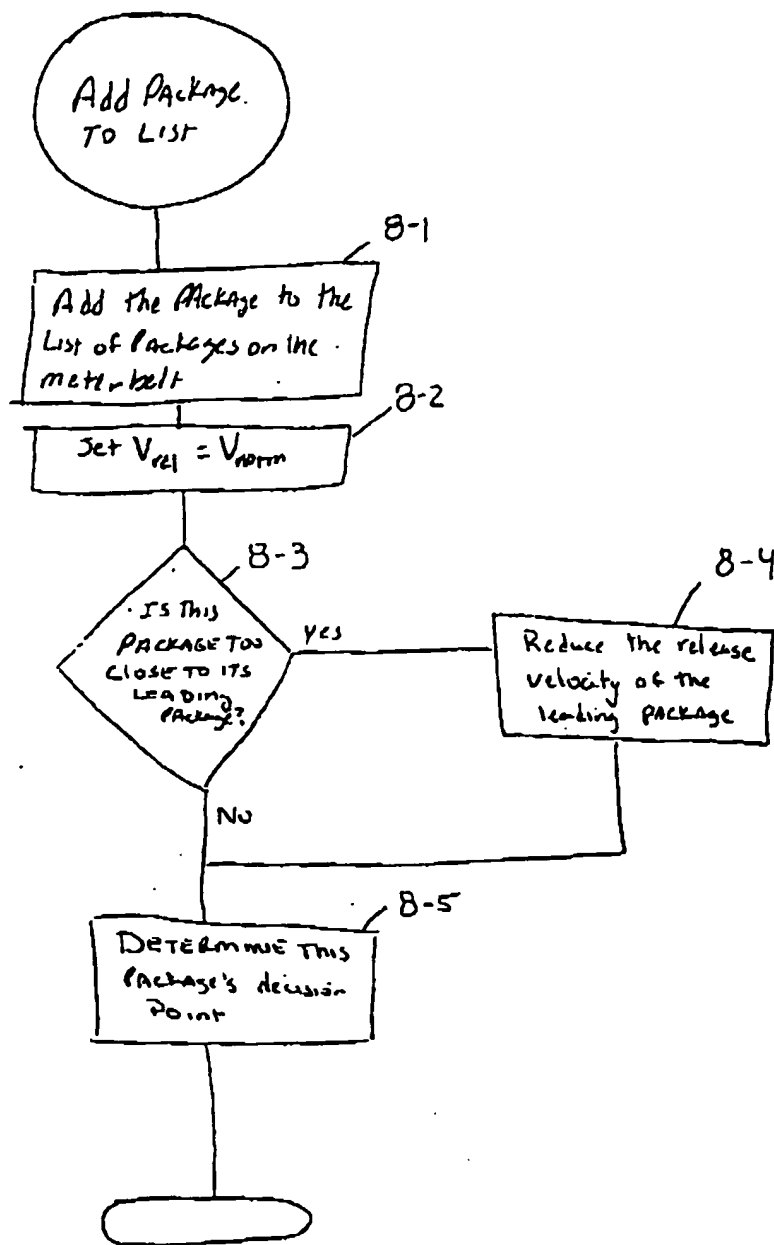 Add Package
TO LIST
8-1
Add the Package to the
List of Packages on the
meter belt
8-2
Set Vrel = Vnorm
8-3
IS THIS
PACKAGE TOO
CLOSE TO ITS
LEADING
PACKAGE?
Yes
8-4
Reduce the release
velocity of the
leading PACKAGE
No
8-5
DETERMINE THIS
PACKAGE'S decision
Point